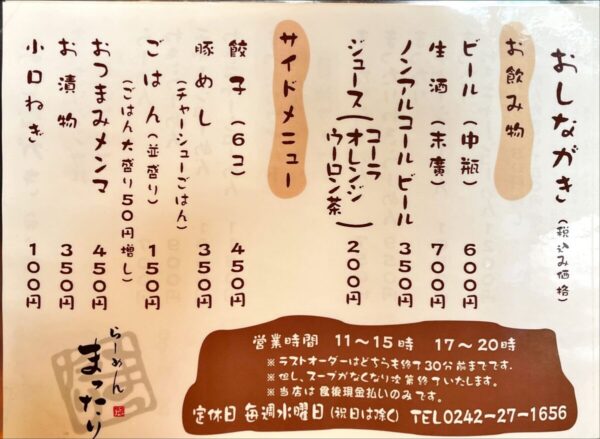 おしながき(税込み価格)
お飲み物
ビール(中瓶) 600円
生酒(末廣) 700円
ノンアルコールビール 350円
ジュース(コーラ オレンジ ウーロン茶) 200円
サイドメニュー
餃子(6コ) 450円
豚めし(チャーシューごはん) 350円
ごはん(並盛り) 150円
(ごはん大盛り50円増し)
おつまみメンマ 450円
お漬物 350円
小口ねぎ 100円
らーめん
まったり
営業時間 11〜15時 17〜20時
※ラストオーダーはどちらも終了30分前までです。
※但し、スープがなくなり次第終了いたします。
※当店は食後現金払いのみです。
定休日 毎週水曜日(祝日は除く) TEL0242-27-1656